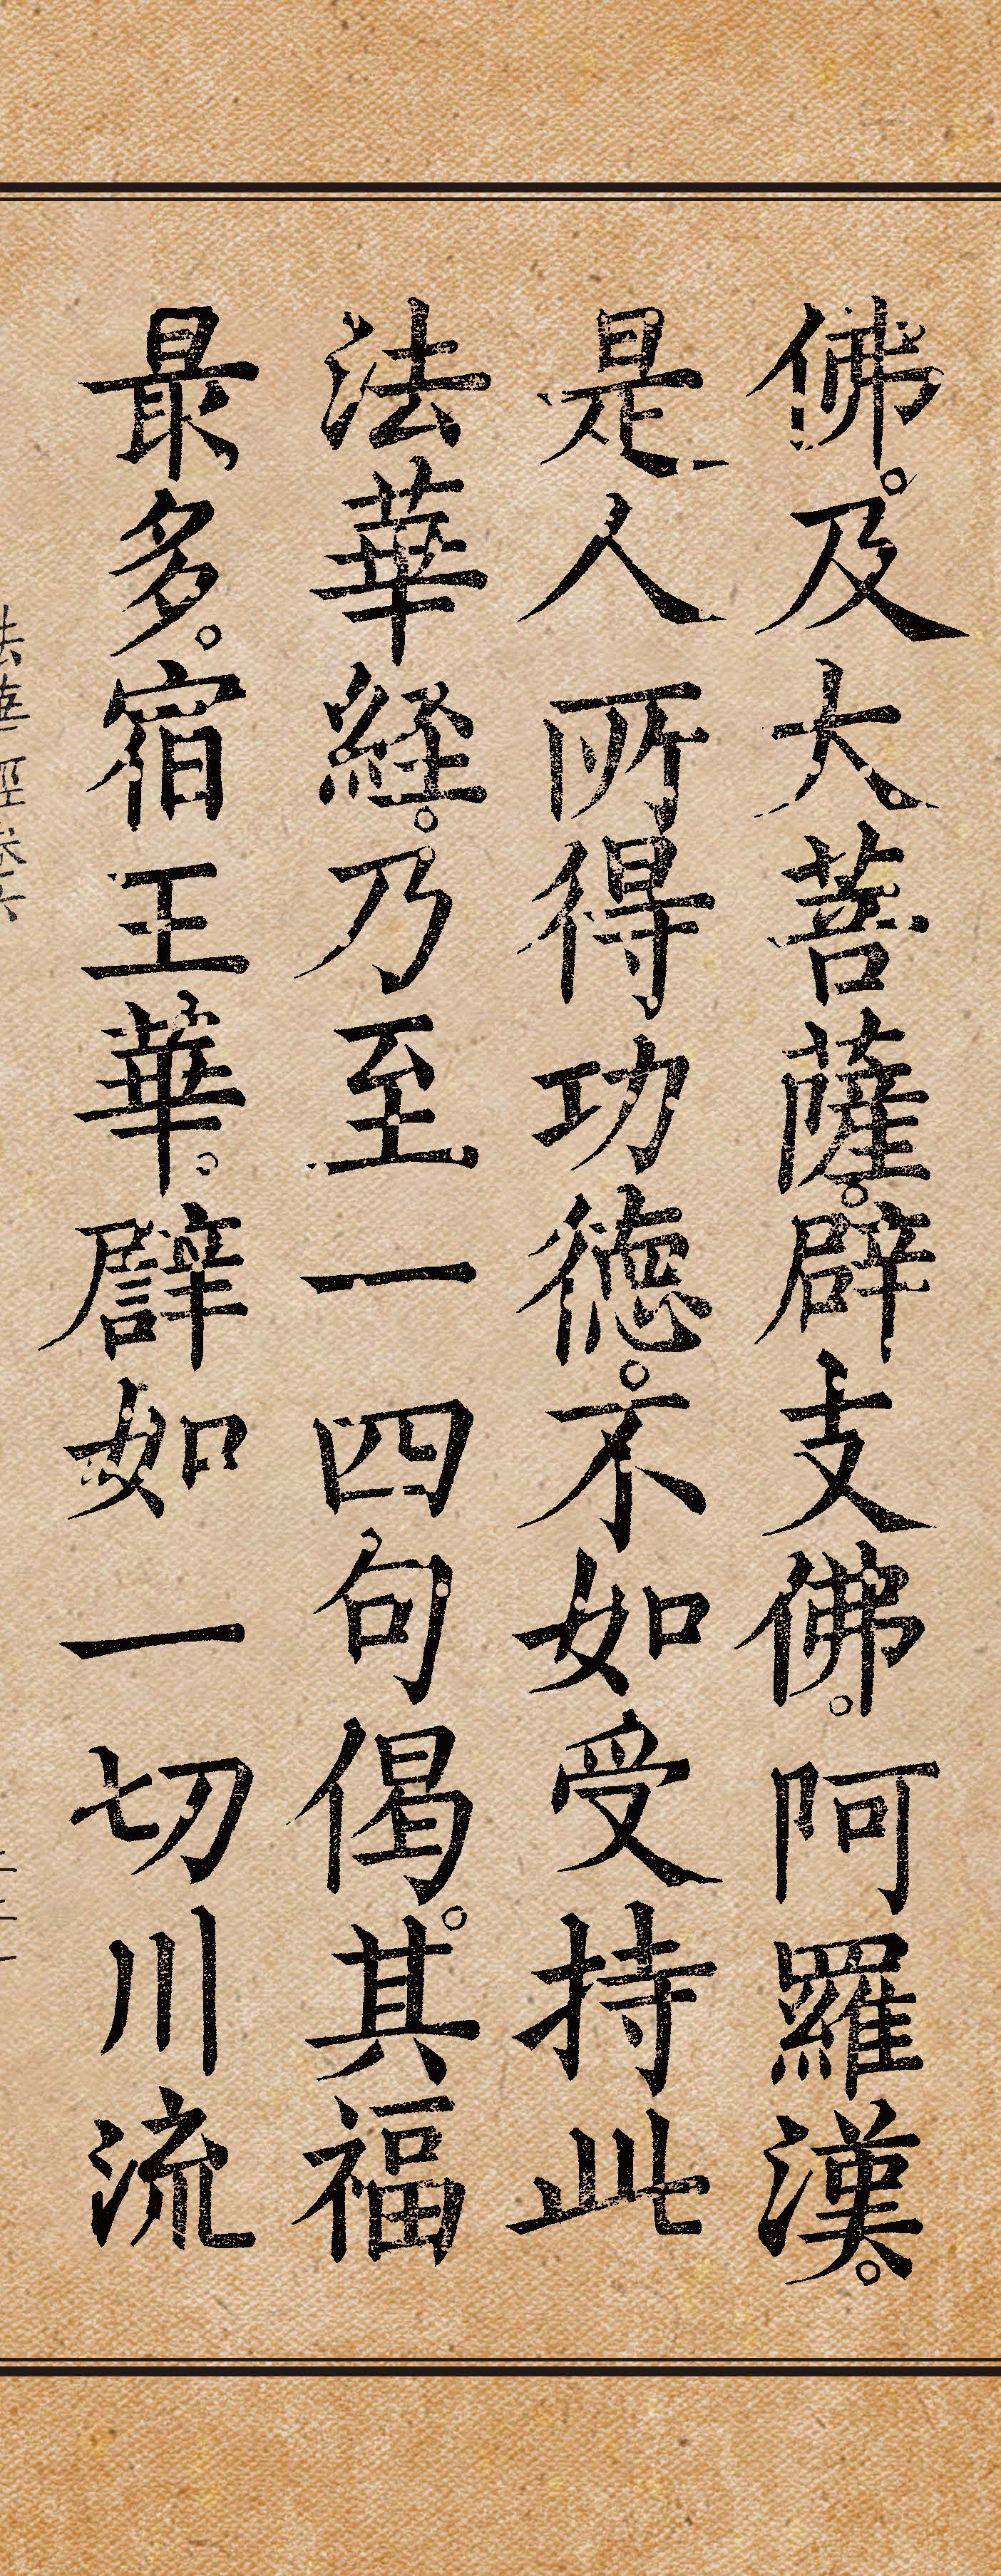 佛。及大菩薩。辟支佛。阿羅漢。
是人所得功德。不如受持此
法華経。乃至一四句偈。其福
最多。宿王華。譬如一切川流